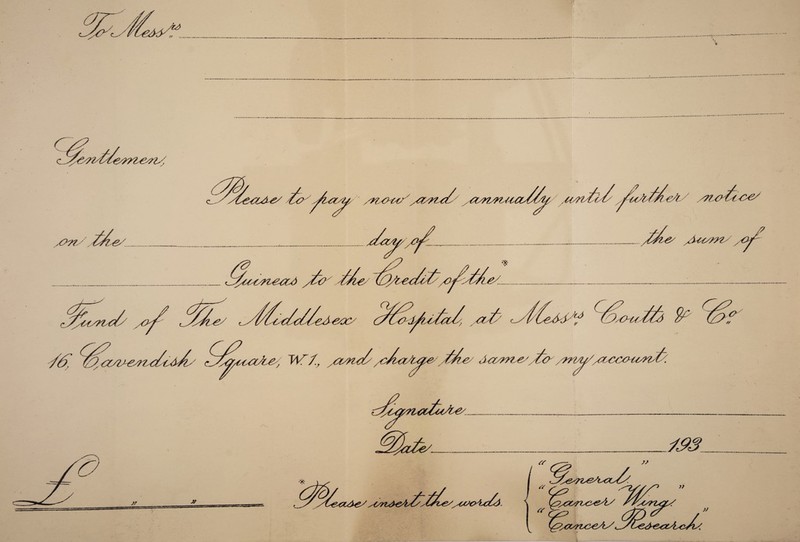 To Messrs
Gentlemen,
Please to pay now and annually until further notice
on the day of the sum of
Guineas to the Credit of the*
Fund of The Middlesex Hospital, at Messrs Coutts & Co
16, Cavendish Square, W.1., and charge the same to my account.
Signature
Date 193
£ " "
*Please insert the words.
"General,"
"Cancer Wing,"
"Cancer Research."